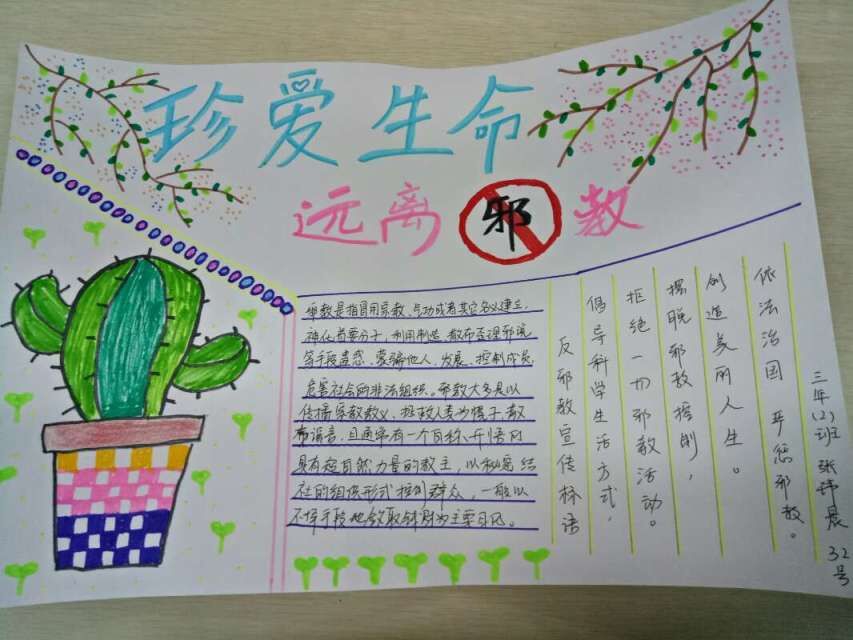 珍爱生命
远离邪教
邪教是指冒用宗教、气功或者其它名义建立,
神化首要分子,利用制造、散布歪理邪说
等手段蛊惑、蒙骗他人,发展、控制成员,
危害社会的非法组织。邪教大多是以
传播宗教教义、拯救人类为幌子,散
布谣言,且通常有一个自称开悟的
具有超自然力量的教主,以秘密结
社的组织形式控制群众,一般以
不择手段地敛取钱财为主要目的。
反邪教宣传标语
倡导科学生活方式,
拒绝一切邪教活动。
摆脱邪教控制,
创造美丽人生。
依法治国 严惩邪教。
三年(2)班 张玮晨 32号